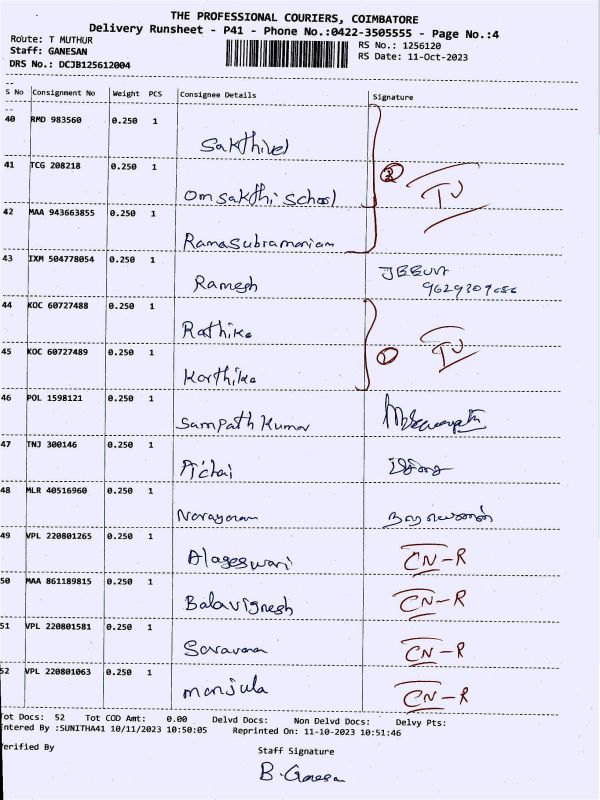 THE PROFESSIONAL COURIERS, COIMBATORE
Delivery Runsheet - P41 - Phone No.:0422-3505555 - Page No.:4
Route: T MUTHUR
Staff: GANESAN
DRS No.: DCJB125612004
RS No.: 1256120
RS Date: 11-Oct-2023
S No Consignment No Weight PCS Consignee Details Signature
40 RMD 983560 0.250 1 Sakthivel
41 TCG 208218 0.250 1 Omsakthi School ② TJ
42 MAA 943663855 0.250 1 Ramasubramaniam
43 IXM 504778054 0.250 1 Ramesh JEEVA
44 KOC 60727488 0.250 1 Rathika
45 KOC 60727489 0.250 1 Karthika ① TJ
46 POL 1598121 0.250 1 Sampath Kumar
47 TNJ 300146 0.250 1 Pichai
48 MLR 40516960 0.250 1 Narayanan நாராயணன்
49 VPL 220801265 0.250 1 Alageswari CN-R
50 MAA 861189815 0.250 1 Balavignesh CN-R
51 VPL 220801581 0.250 1 Saravana CN-R
52 VPL 220801063 0.250 1 manjula CN-R
Tot Docs: 52 Tot COD Amt: 0.00 Delvd Docs: Non Delvd Docs: Delvy Pts:
Entered By :SUNITHA41 10/11/2023 10:50:05 Reprinted On: 11-10-2023 10:51:46
Verified By Staff Signature
B. Ganesan